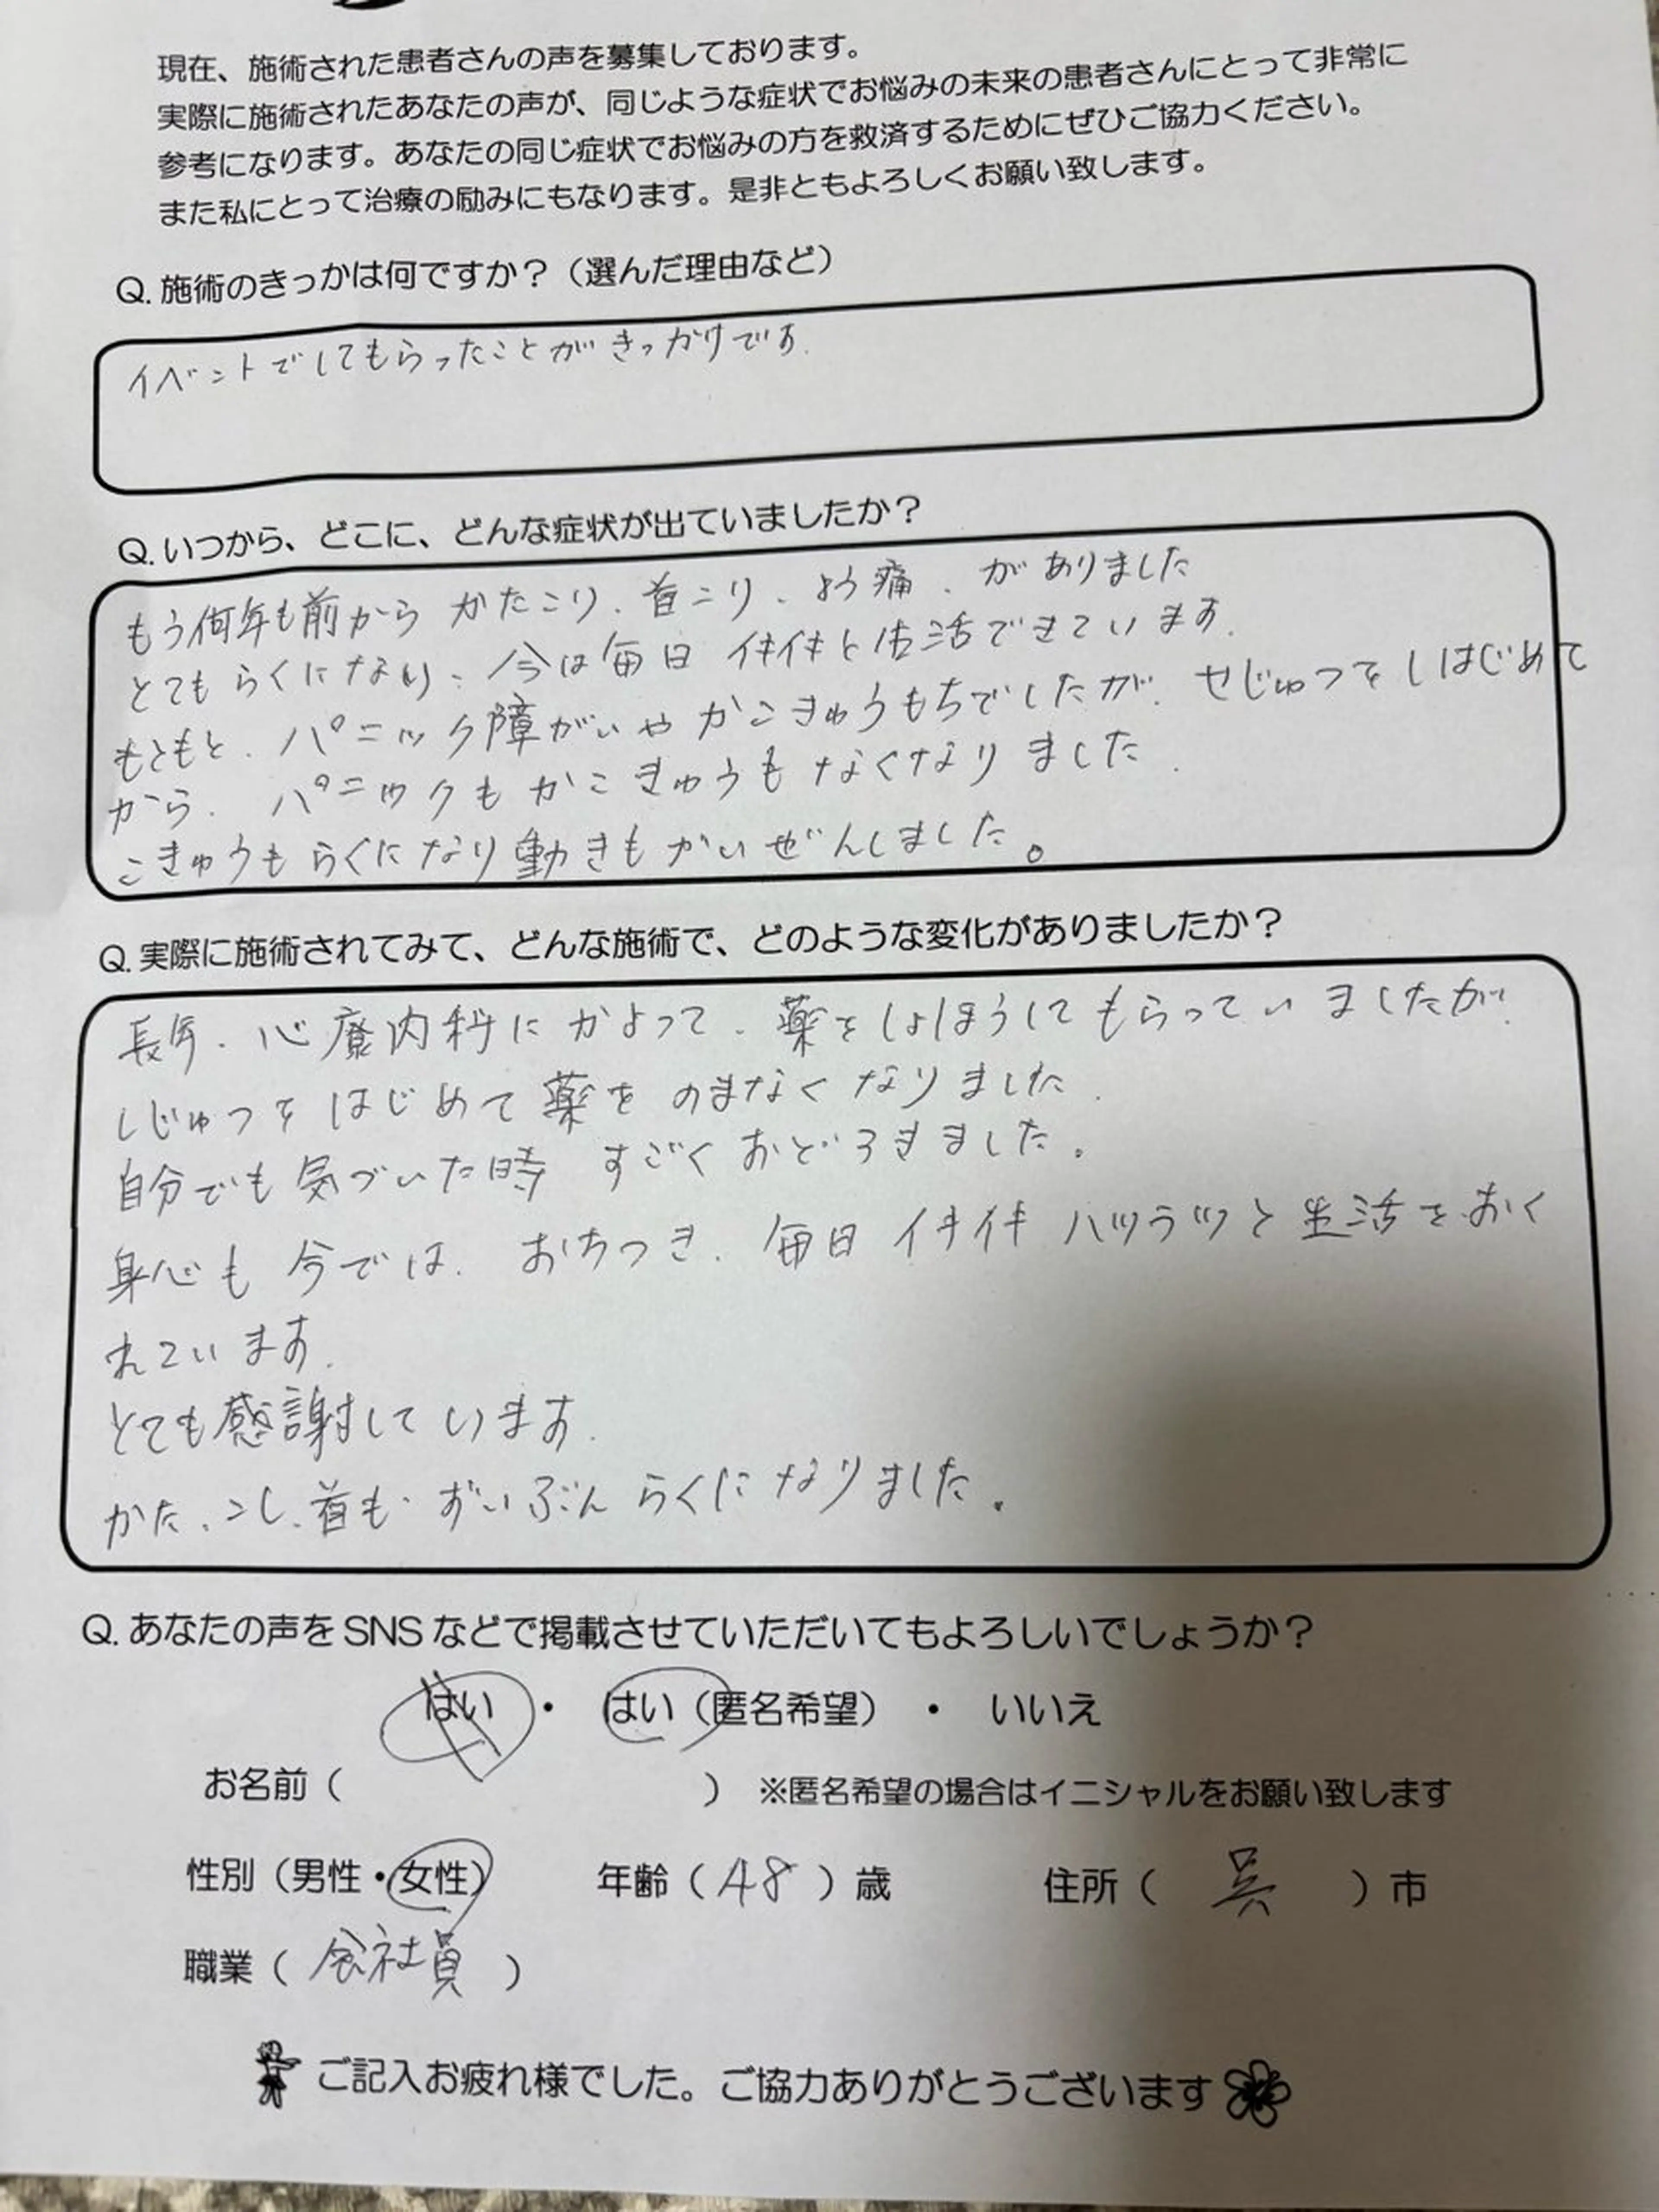 現在、施術された患者さんの声を募集しております。
実際に施術されたあなたの声が、同じような症状でお悩みの未来の患者さんにとって非常に
参考になります。あなたの同じ症状でお悩みの方を救済するためにぜひご協力ください。
また私にとって治療の励みにもなります。是非ともよろしくお願い致します。
Q. 施術のきっかは何ですか？（選んだ理由など）
イベントでしてもらったことがきっかけです.
Q. いつから、どこに、どんな症状が出ていましたか？
もう何年も前から かたこり、首こり、よう痛、がありました
とてもらくになり、今は毎日 イキイキと生活できています.
もともと、パニック障がいや かこきゅうもちでしたが、せじゅつをしはじめて
から、パニックもかこきゅうもなくなりました.
こきゅうもらくになり動きもかいぜんしました。
Q. 実際に施術されてみて、どんな施術で、どのような変化がありましたか？
長年、心療内科にかよって、薬をしょほうしてもらっていましたが、
しじゅつをはじめて薬をのまなくなりました.
自分でも気づいた時 すごくおどろきました。
身心も今では、おちつき、毎日イキイキハツラツと生活をおく
れています.
とても感謝しています.
かた、こし、首も、ずいぶんらくになりました。
Q. あなたの声を SNS などで掲載させていただいてもよろしいでしょうか？
はい ・ はい（匿名希望） ・ いいえ
お名前（ ） ※匿名希望の場合はイニシャルをお願い致します
性別（男性・女性） 年齢（ 48 ）歳 住所（ 呉 ）市
職業（ 会社員 ）
ご記入お疲れ様でした。ご協力ありがとうございます